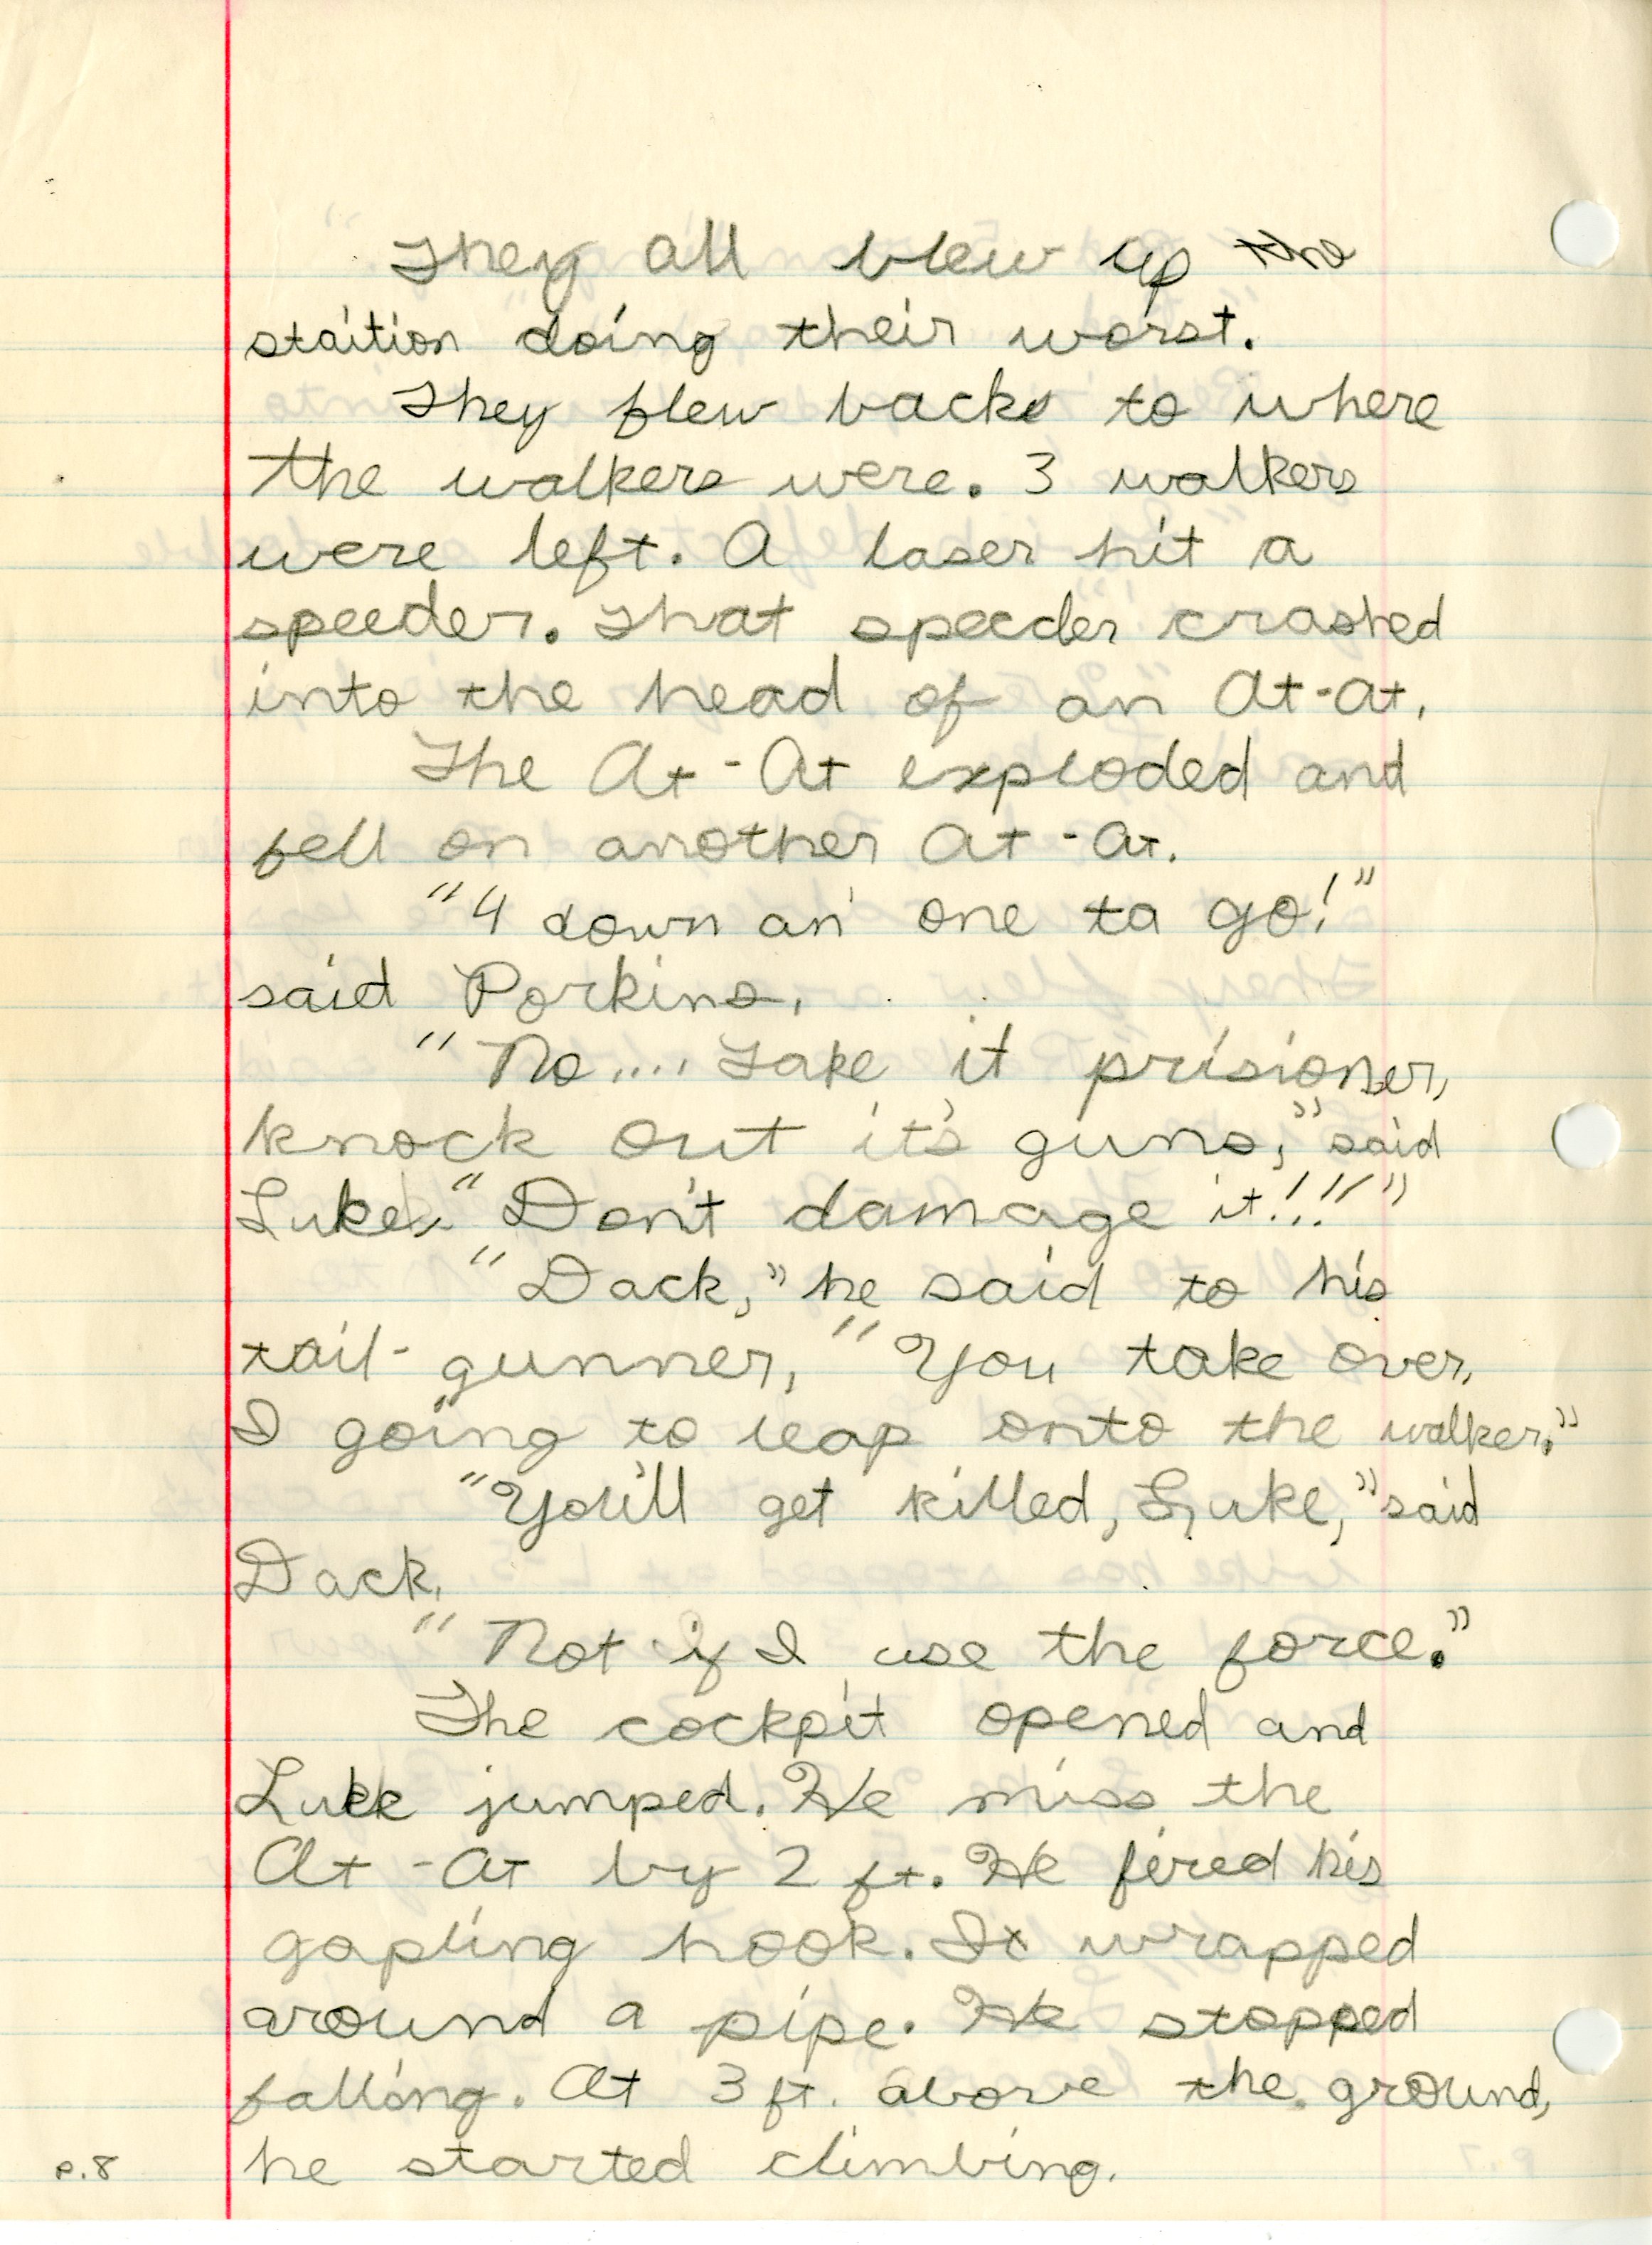 They all blew up the
staition doing their worst.
They flew back to where
the walkers were. 3 walkers
were left. A laser hit a
speeder. That speeder crashed
into the head of an At-At.
The At-At exploded and
fell on another At-At.
"4 down an' one ta go!"
said Porkins.
"No.... Take it prisioner,
knock out it's guns," said
Luke. "Don't damage it!!!"
"Dack," he said to his
tail-gunner, "You take over,
I going to leap onto the walker."
"You'll get killed, Luke," said
Dack.
"Not if I use the force."
The cockpit opened and
Luke jumped. He miss the
At-At by 2 ft. He fired his
gapling hook. It wrapped
around a pipe. He stopped
falling. At 3 ft. above the ground,
he started climbing.
p.8